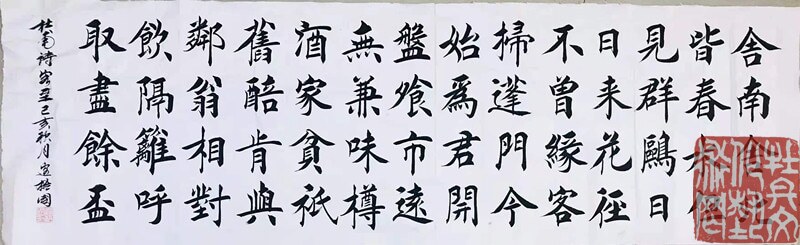 舍南舍北
皆春水但
見群鷗日
日来花徑
不曾緣客
掃蓬門今
始爲君開
盤飱市遠
無兼味樽
酒家貧衹
舊醅肯與
鄰翁相對
飲隔籬呼
取盡餘盃
杜甫詩客至己亥秋月